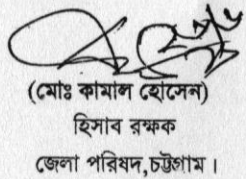 (মোঃ কামাল হোসেন)
হিসাব রক্ষক
জেলা পরিষদ,চট্টগ্রাম।